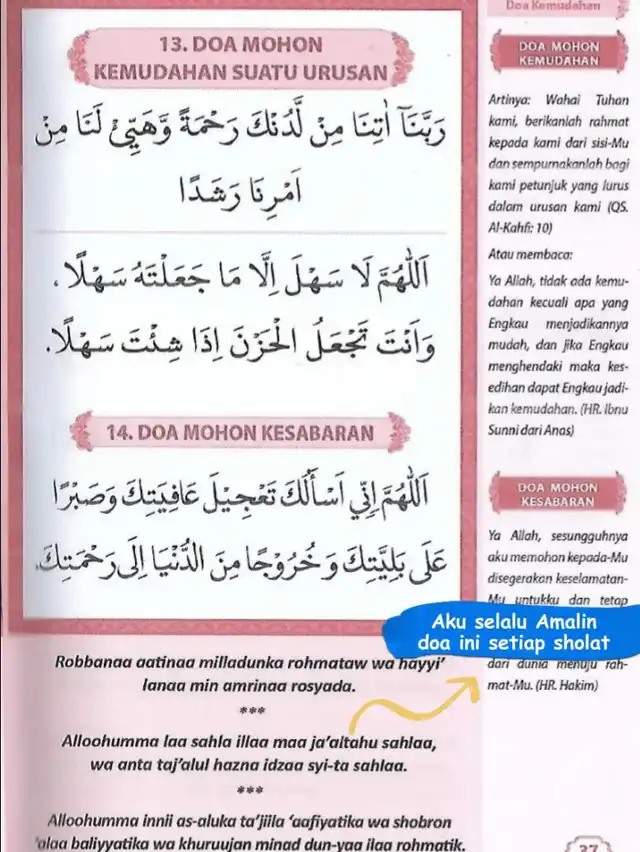 Doa Kemudahan
13. DOA MOHON
KEMUDAHAN SUATU URUSAN
رَبَّنَآ اٰتِنَا مِنْ لَّدُنْكَ رَحْمَةً وَّهَيِّئْ لَنَا مِنْ
اَمْرِنَا رَشَدًا
اَللّٰهُمَّ لَا سَهْلَ اِلَّا مَا جَعَلْتَهُ سَهْلًا ،
وَاَنْتَ تَجْعَلُ الْحَزْنَ اِذَا شِئْتَ سَهْلًا.
14. DOA MOHON KESABARAN
اَللّٰهُمَّ اِنِّي اَسْأَلُكَ تَعْجِيْلَ عَافِيَتِكَ وَصَبْرًا
عَلَى بَلِيَّتِكَ وَخُرُوْجًا مِنَ الدُّنْيَا اِلَى رَحْمَتِكَ.
Robbanaa aatinaa milladunka rohmataw wa hayyi’
lanaa min amrinaa rosyada.
***
Alloohumma laa sahla illaa maa ja’altahu sahlaa,
wa anta taj’alul hazna idzaa syi-ta sahlaa.
***
Alloohumma innii as-aluka ta’jiila ‘aafiyatika wa shobron
‘alaa baliyyatika wa khuruujan minad dun-yaa ilaa rohmatik.
DOA MOHON
KEMUDAHAN
Artinya: Wahai Tuhan
kami, berikanlah rahmat
kepada kami dari sisi-Mu
dan sempurnakanlah bagi
kami petunjuk yang lurus
dalam urusan kami (QS.
Al-Kahfi: 10)
Atau membaca:
Ya Allah, tidak ada kemu-
dahan kecuali apa yang
Engkau menjadikannya
mudah, dan jika Engkau
menghendaki maka kes-
edihan dapat Engkau jadi-
kan kemudahan. (HR. Ibnu
Sunni dari Anas)
DOA MOHON
KESABARAN
Ya Allah, sesungguhnya
aku memohon kepada-Mu
disegerakan keselamatan-
Mu untukku dan tetap
Aku selalu Amalin
doa ini setiap sholat
dari dunia menuju rah-
mat-Mu. (HR. Hakim)
37